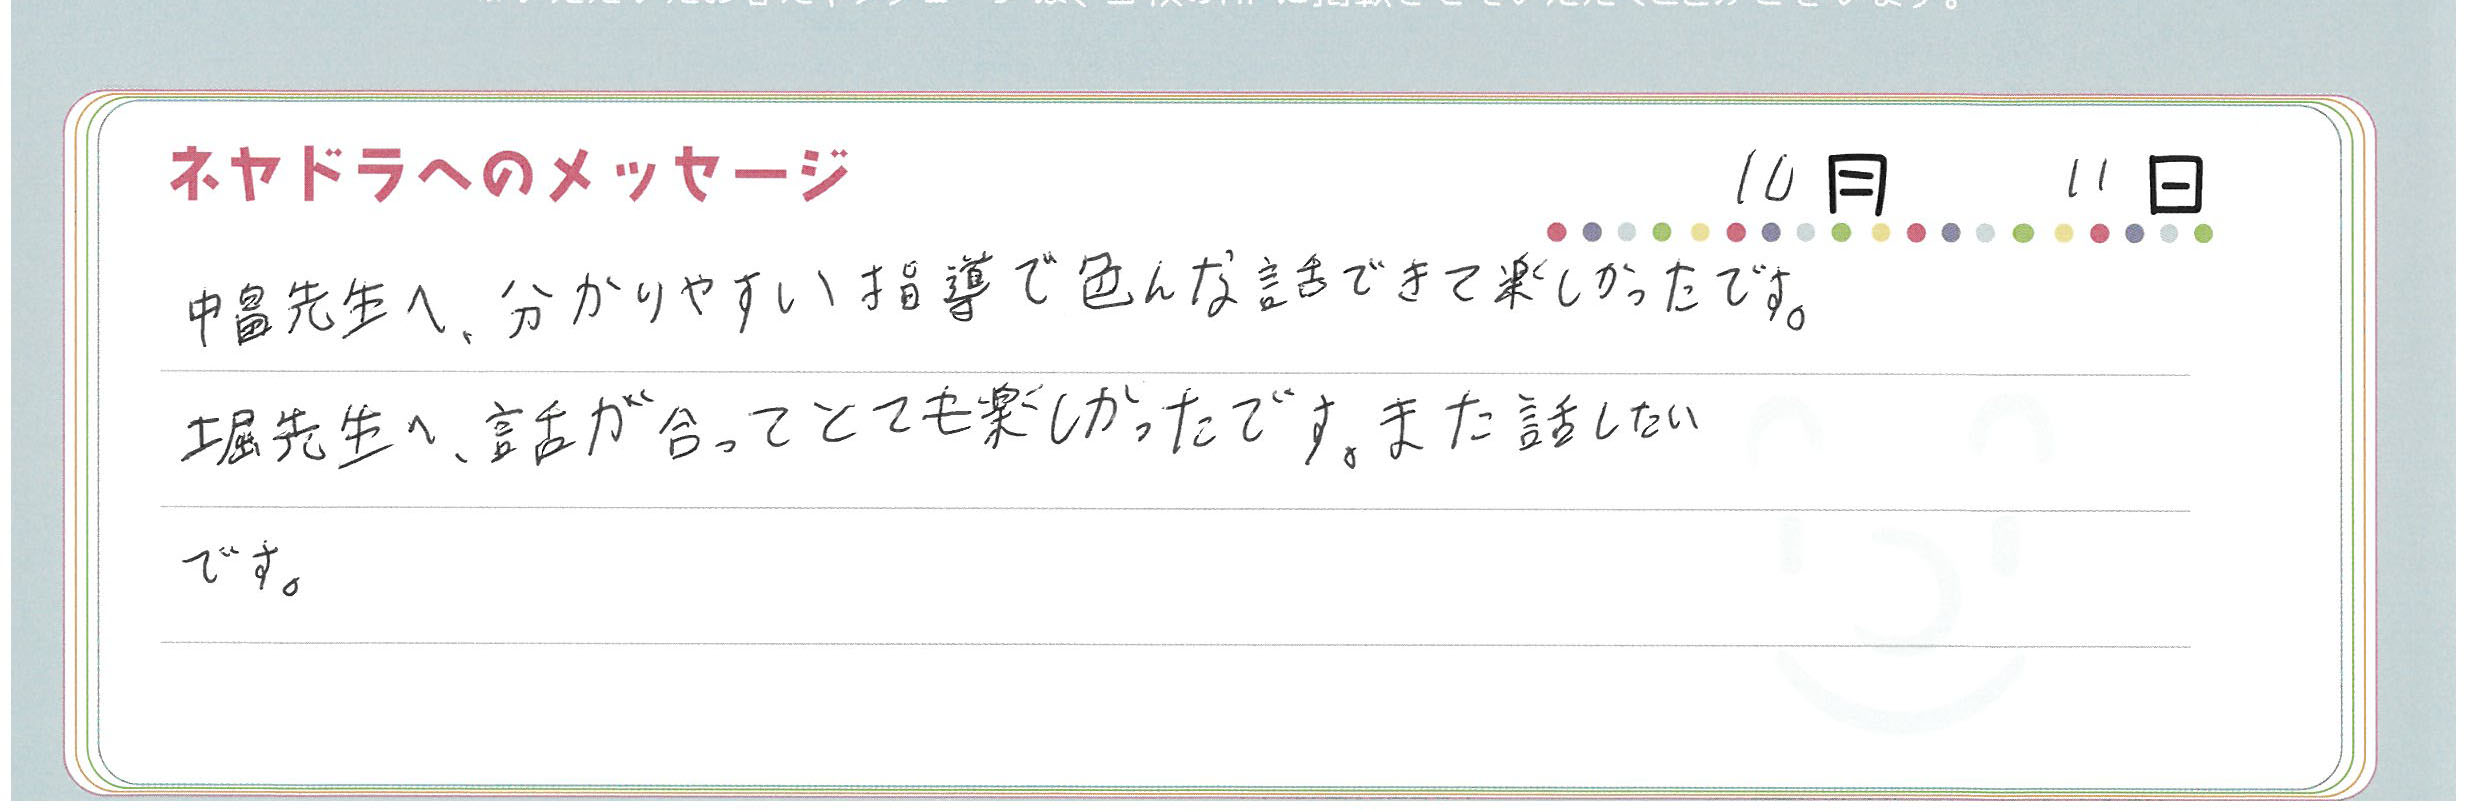 ネヤドラへのメッセージ
10月 11日
中畠先生へ、分かりやすい指導で色んな話できて楽しかったです。
堀先生へ、話が合ってとても楽しかったです。また話したい
です。